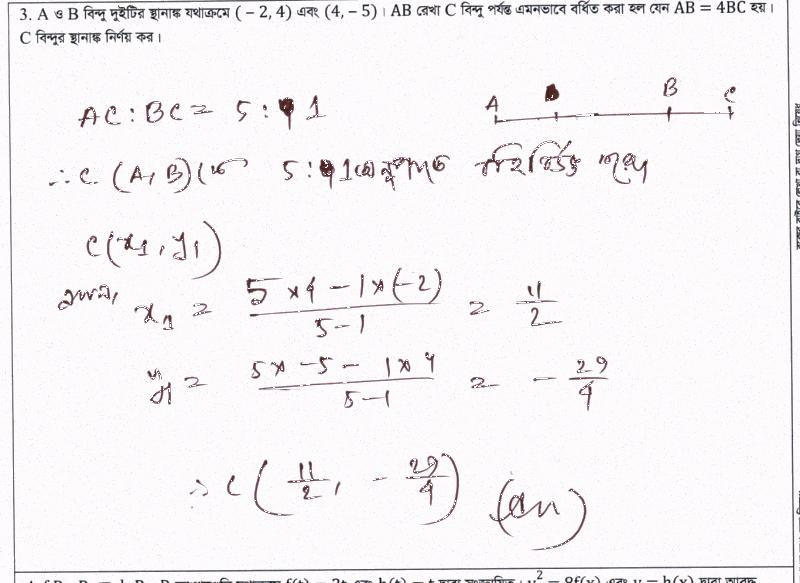 3. A ও B বিন্দু দুইটির স্থানাঙ্ক যথাক্রমে (− 2, 4) এবং (4, − 5)। AB রেখা C বিন্দু পর্যন্ত এমনভাবে বর্ধিত করা হল যেন AB = 4BC হয়।
C বিন্দুর স্থানাঙ্ক নির্ণয় কর।
A B C
AC : BC = 5 : 1
∴ C (A, B) কে 5 : 1 অনুপাতে বহির্বিভক্ত করে
C(x₁, y₁)
x₁ = \frac{5 × 4 − 1 × (−2)}{5 − 1} = \frac{11}{2}
y₁ = \frac{5 × −5 − 1 × 4}{5 − 1} = − \frac{29}{4}
∴ C ( \frac{11}{2}, − \frac{29}{4} ) (Ans)